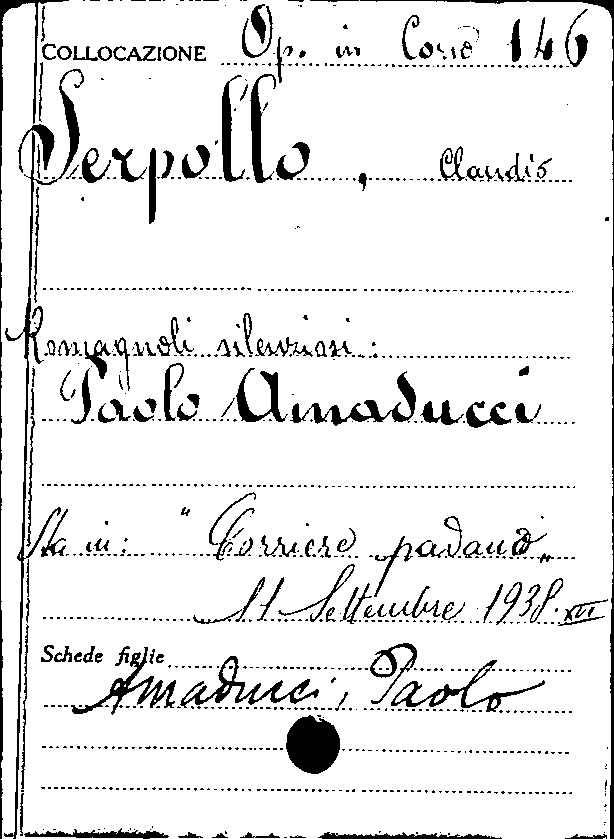 COLLOCAZIONE Op. in Corso 146
Serpollo, Claudio
Romagnoli silenziosi:
Paolo Amaducci
Sta in: "Corriere padano„
11 Settembre 1938. XVI
Schede figlie
Amaducci, Paolo